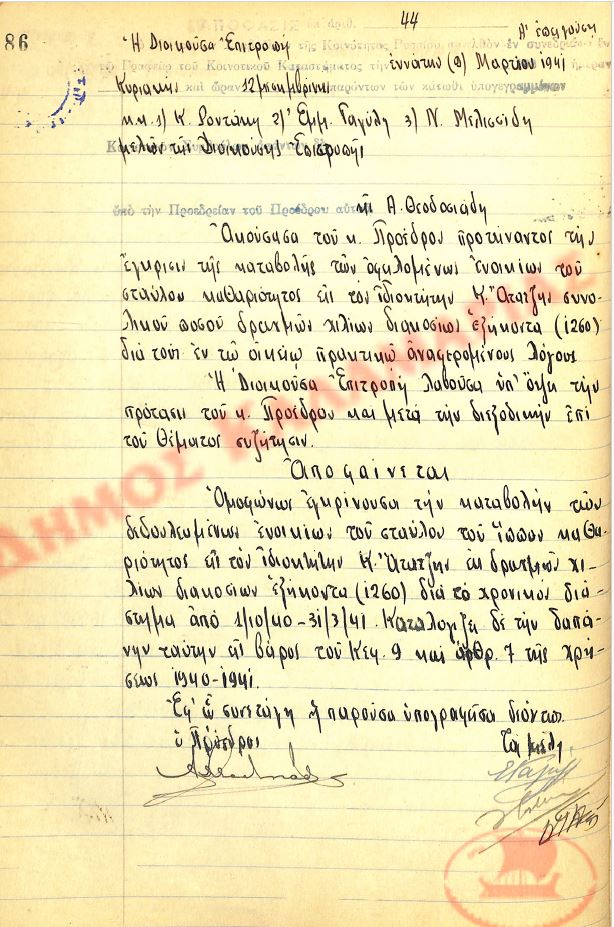 86
44
Α' ἐπιγοῦσι
ΑΠΟΦΑΣΙΣ ὑπ' ἀριθ.
Ἡ Διοικοῦσα Ἐπιτροπὴ
τῆς Κοινότητος Ρυσίου, συνελθὸν ἐν συνεδρείᾳ ἐν
τῷ Γραφείῳ τοῦ Κοινοτικοῦ Καταστήματος τὴν ἐννάτην (9) Μαρτίου 1941 ἡμέραν
Κυριακὴν καὶ ὥραν 12 μεσημβρινὴν παρόντων τῶν κάτωθι ὑπογεγραμμένων
κ.κ. 1) Κ. Ροντάκη 2) Ἐμμ. Γαγύλη 3) Ν. Μελισσίδη
μελῶν τῆς Διοικούσης Ἐπιτροπῆς
ὑπὸ τὴν Προεδρείαν τοῦ Προέδρου αὐτῆς κ. Α. Θεοδοσιάδη
Ἀκούσασα τοῦ κ. Προέδρου προτείναντος τὴν
ἔγκρισιν τῆς καταβολῆς τῶν ὀφηλομένων ἐνοικίων τοῦ
σταύλου καθαριότητος εἰς τὸν ἰδιοκτήτην Κ. Ἀτατζῆν συνο-
λικοῦ ποσοῦ δραχμῶν χιλίων διακοσίων ἑξήκοντα (1260)
διὰ τοὺς ἐν τῷ οἰκείῳ πρακτικῷ ἀναφερομένους λόγους
Ἡ Διοικοῦσα Ἐπιτροπὴ λαβοῦσα ὑπ' ὄψιν τὴν
πρότασιν τοῦ κ. Προέδρου καὶ μετὰ τὴν διεξοδικὴν ἐπὶ
τοῦ θέματος συζήτησιν.
Ἀποφαίνεται
Ὁμοφώνως ἐγκρίνουσα τὴν καταβολὴν τῶν
δεδουλευμένων ἐνοικίων τοῦ σταύλου τοῦ ἵππου καθα-
ριότητος εἰς τὸν ἰδιοκτήτην Κ. Ἀτατζῆν ἐκ δραχμῶν χι-
λίων διακοσίων ἑξήκοντα (1260) διὰ τὸ χρονικὸν διά-
στημα ἀπὸ 1/10/40-31/3/41. Καταλογίζει δὲ τὴν δαπά-
νην ταύτην εἰς βάρος τοῦ Κεφ. 9 καὶ ἄρθρ. 7 τῆς χρή-
σεως 1940-1941.
Ἐφ' ᾧ συνετάγη ἡ παροῦσα ὑπογραφεῖσα
ὁ Πρόεδρος
Τὰ μέλη
ΔΗΜΟΣ ΚΑΛΑΜΑΡΙΑΣ